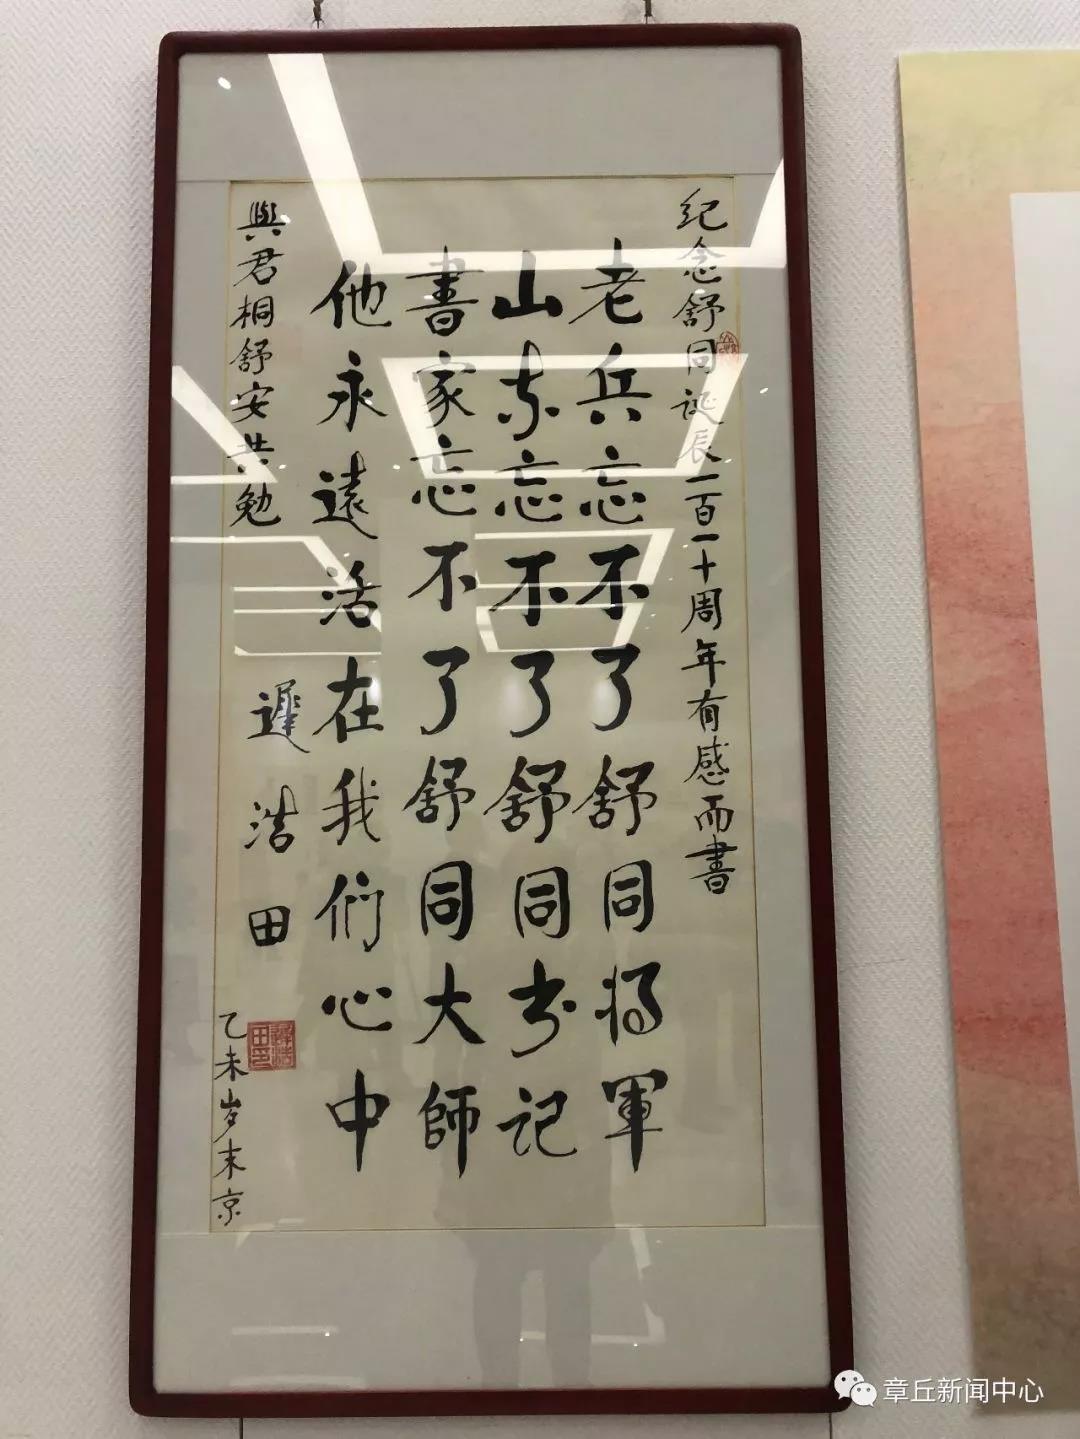 纪念舒同诞辰一百一十周年有感而書
老兵忘不了舒同将軍
山东忘不了舒同书记
書家忘不了舒同大師
他永遠活在我们心中
與君桐舒安共勉
遲浩田
乙未岁末京
章丘新闻中心